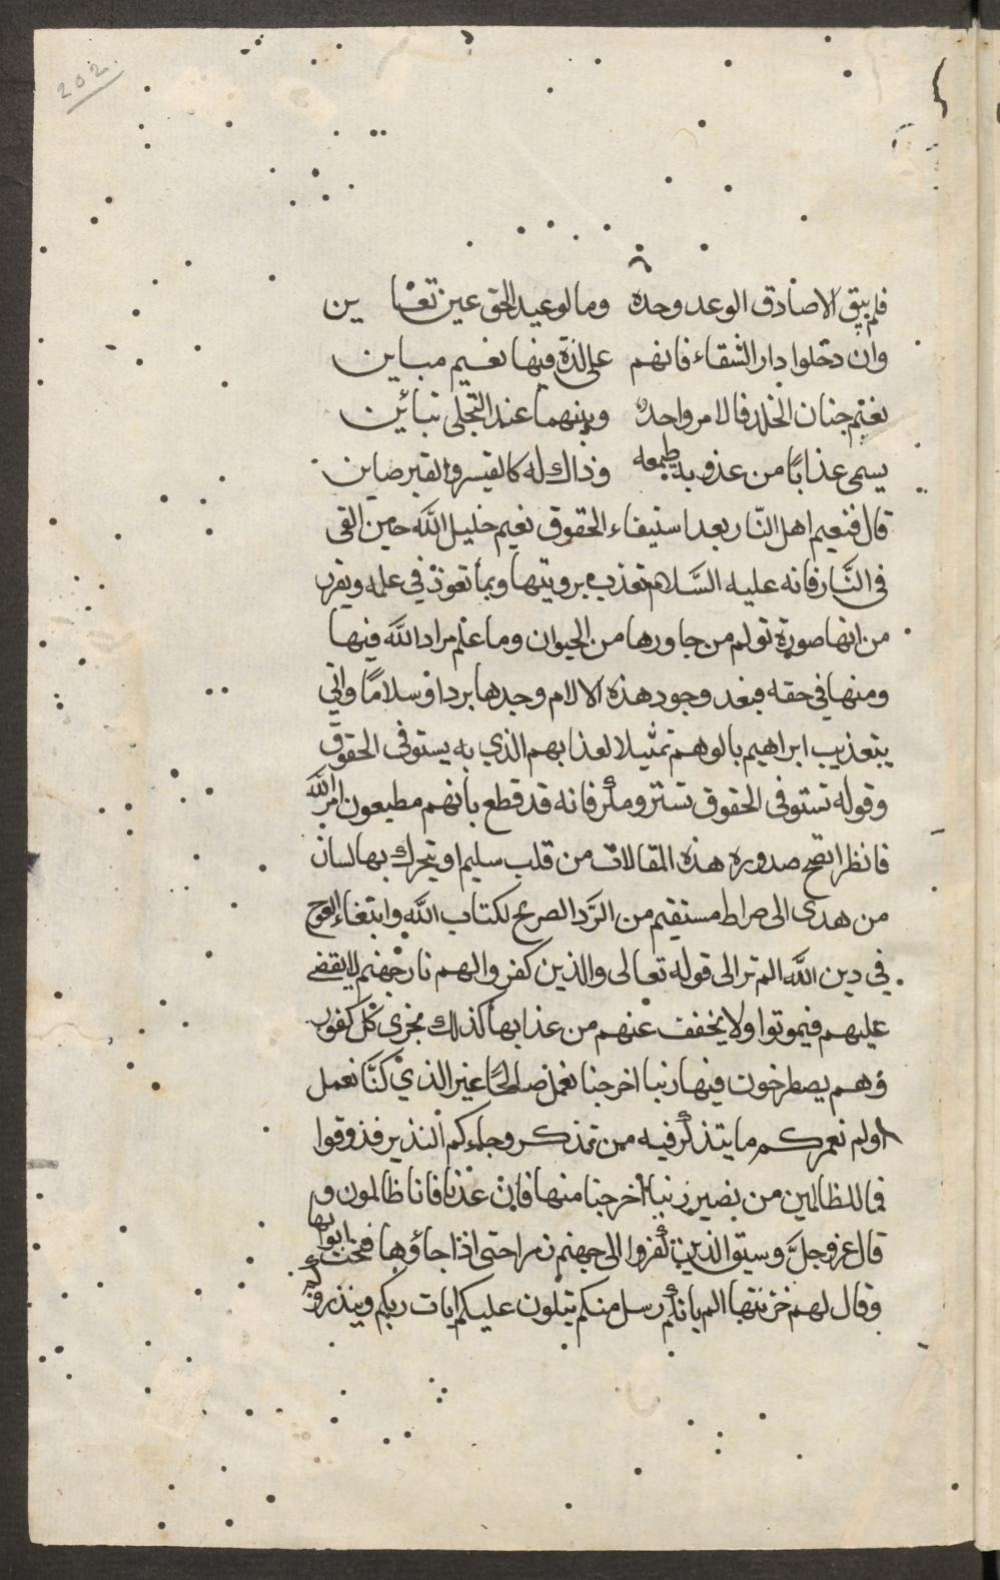 202
فلم يبق الا صادق الوعد وحده وما لوعيد الحق عين تعاين
وان دخلوا دار الشقاء فانهم على لذة فيها نعيم مباين
نعيم جنان الخلد فالامر واحد وبينهما عند التجلى تبائين
يسمى عذابًا من عذوبة طعمه وذاك له كالقشر والقشر صاين
قال فنعيم اهل النّار بعد استيفاء الحقوق نعيم خليل اللّه حين القى
فى النَّار فانه عليه السَّلام تعذب برويتها وبما تعوذ في علمه وتقرر
من انها صورة تولم من جاورها من الحيوان وما علم مراد اللّه فيها
ومنها في حقه فبعد وجود هذه الالام وجدها بردا وسلامًا واتي
بتعذيب ابراهيم بالوهم تمثيلا لعذابهم الذي به يستوفى الحقوق
وقوله تستوفى الحقوق تستر فانه قد قطع بأنهم مطيعون امر اللّه
فانظر ايصح صدوره هذه المقالات من قلب سليم او يتحرك بها لسان
من هدى الى صراط مستقيم من الرَّد الصريح لكتاب اللّه وابتغاء العوج
في دين اللّه الم تر الى قوله تعالى والذين كفروا لهم نار جهنم لا يقضى
عليهم فيموتوا ولا يخفف عنهم من عذابها كذلك نجزي كل كفور
وهم يصطرخون فيها ربنا اخرجنا نعمل صالحًا غير الذي كنَّا نعمل
اولم نعمركم ما يتذكر فيه من تذكر وجاءكم النذير فذوقوا
فما للظالمين من نصير ربنا اخرجنا منها فان عدنا فانا ظالمون و
قال عز وجلَّ وسيق الذين كفروا الى جهنم زمرا حتى اذا جاؤها فتحت ابوابها
وقال لهم خزنتها الم يأتكم رسل منكم يتلون عليكم ايات ربكم وينذرونكم